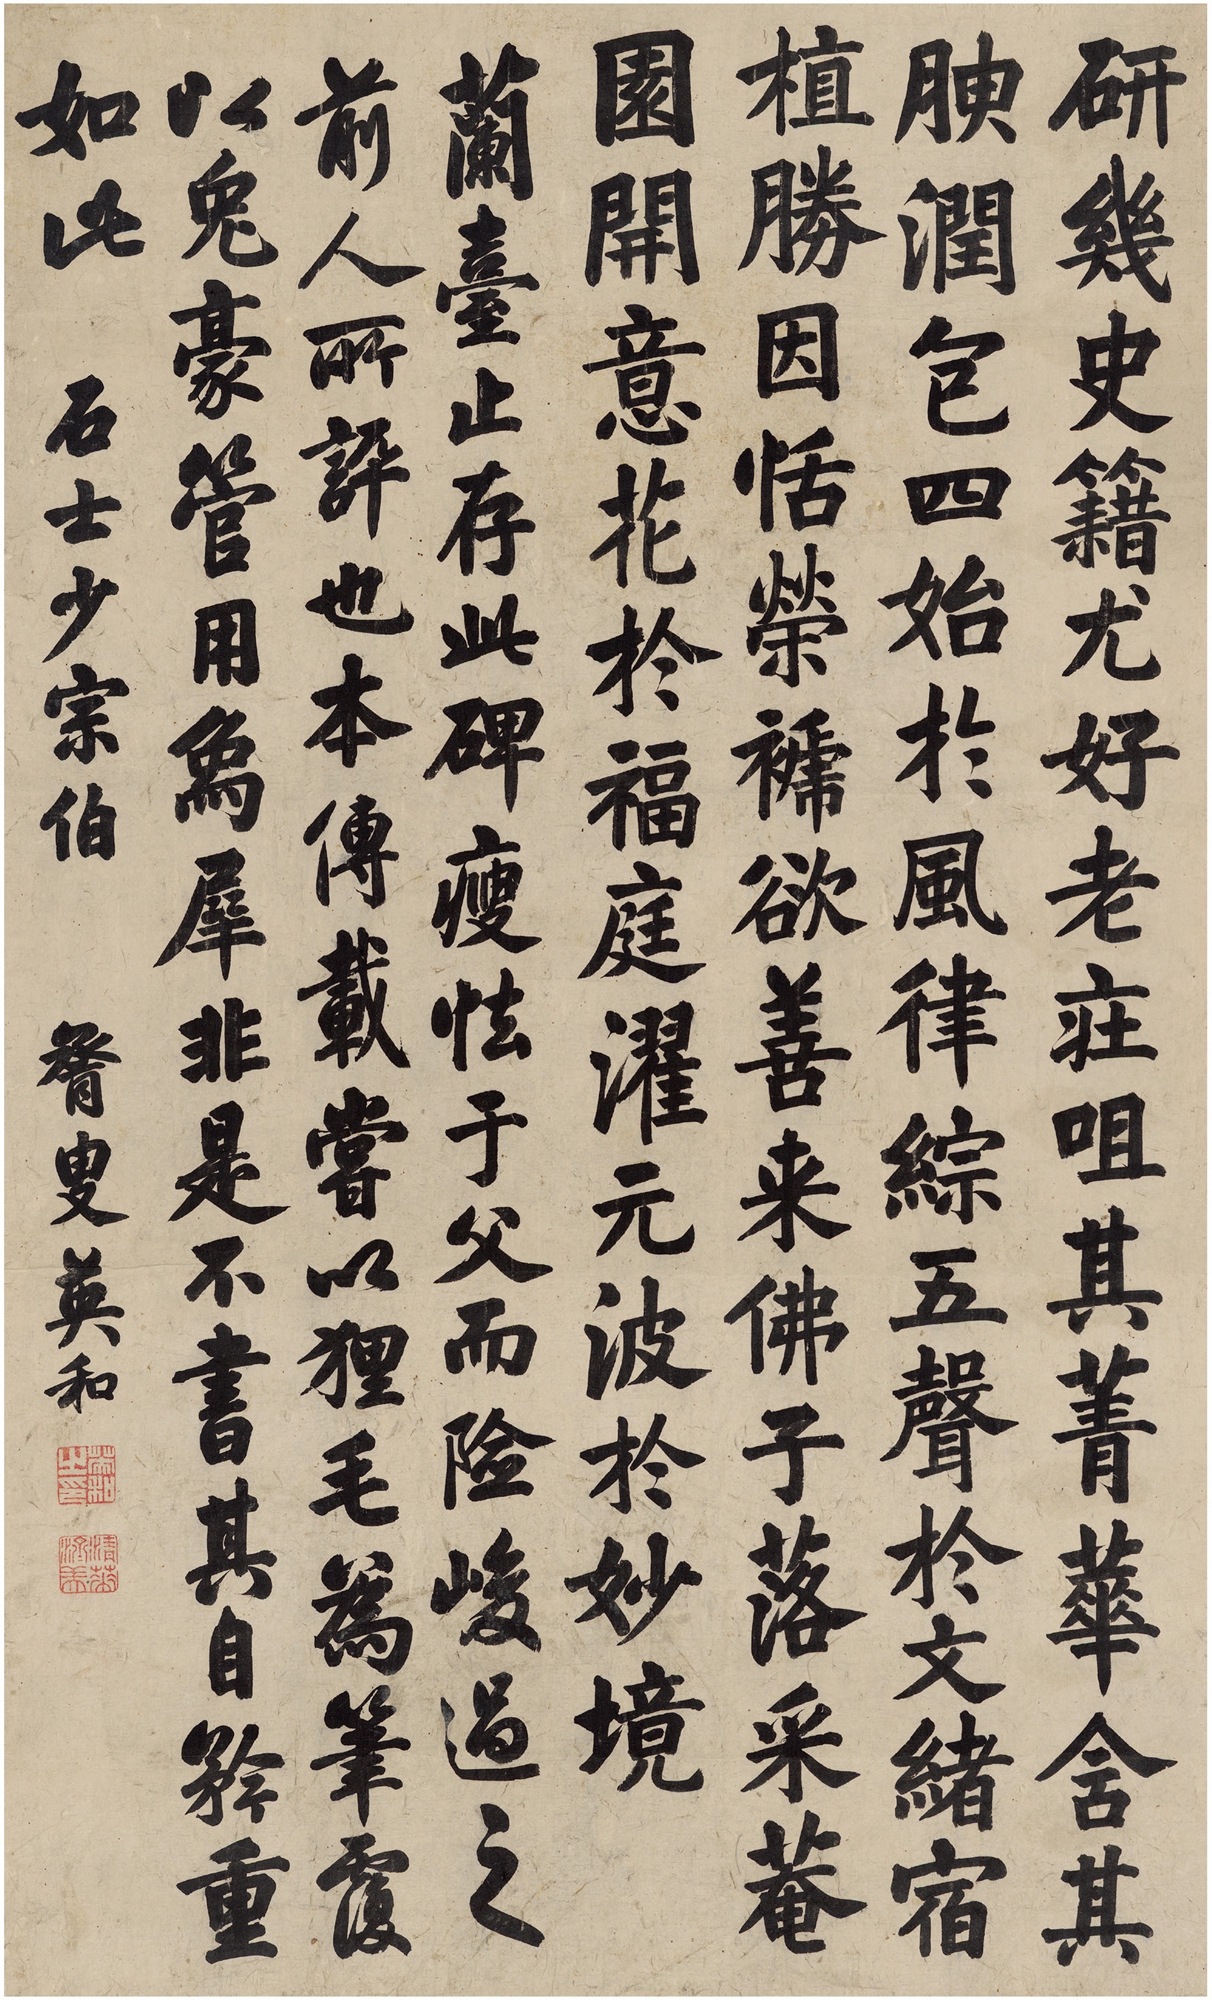 研幾史籍尤好老莊咀其菁華含其
腴潤包四始於風律綜五聲於文緒宿
植勝因恬榮褥欲善来佛子落采菴
園開意花於福庭濯元波於妙境
蘭臺止存此碑瘦怯于父而險峻過之
前人所評也本傳載嘗以狸毛為筆覆
以兔豪管用象犀非是不書其自矜重
如此 石士少宗伯 脀叟英和
英和之印